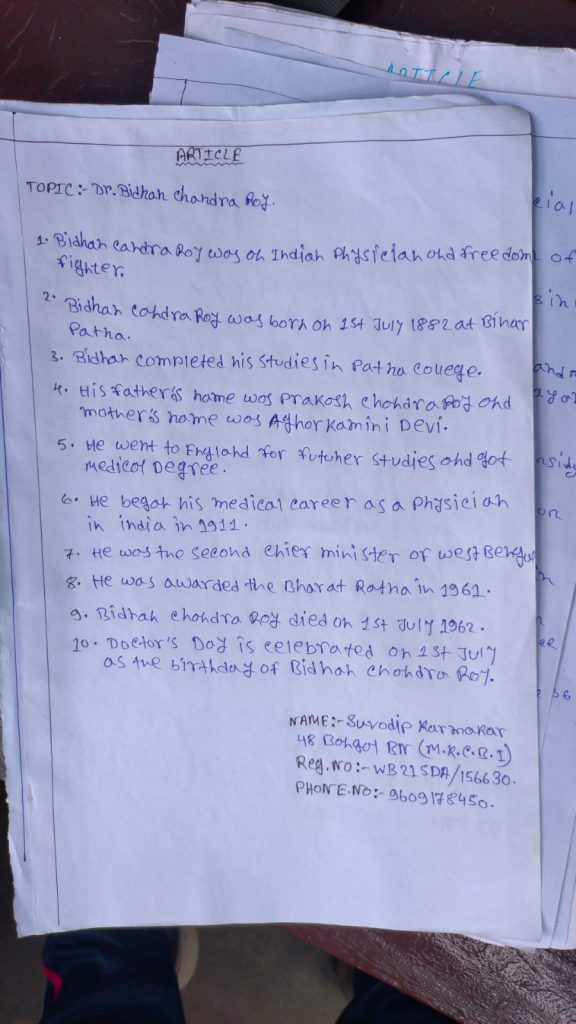 ARTICLE
ARTICLE
TOPIC:- Dr. Bidhan Chandra Roy.
1. Bidhan candra Roy was an Indian Physician and freedom
fighter.
2. Bidhan candra Roy was born on 1st July 1882 at Bihar
Patna.
3. Bidhan completed his studies in Patna college.
4. His father's name was Prakash Chandra Roy and
mother's name was Aghorkamini Devi.
5. He went to England for futuher studies and got
medical Degree.
6. He began his medical career as a Physician
in india in 1911.
7. He was the second chief minister of west Bengal
8. He was awarded the Bharat Ratna in 1961.
9. Bidhan chandra Roy died on 1st July 1962.
10. Doctor's Day is celebrated on 1st July
as the birthday of Bidhan Chandra Roy.
NAME:- Suvodip Karmakar
48 Bangal BN (M.K.C.B.I)
Reg.NO:- WB21SDA/156630.
PHONE.NO:- 9609178450.